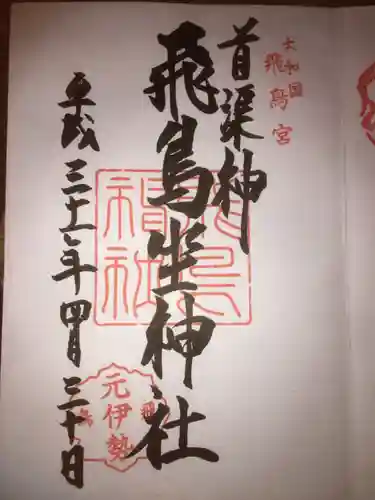 大和国
飛鳥宮
首渠神
飛鳥坐神社
平成三十一年四月三十日
元伊勢